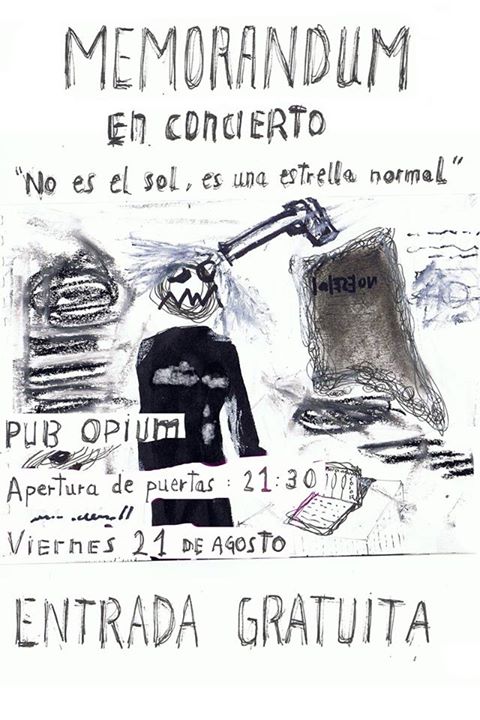 MEMORANDUM
EN CONCIERTO
"No es el sol, es una estrella normal"
PUB OPIUM
Apertura de puertas : 21:30
VIERNES 21 DE AGOSTO
ENTRADA GRATUITA